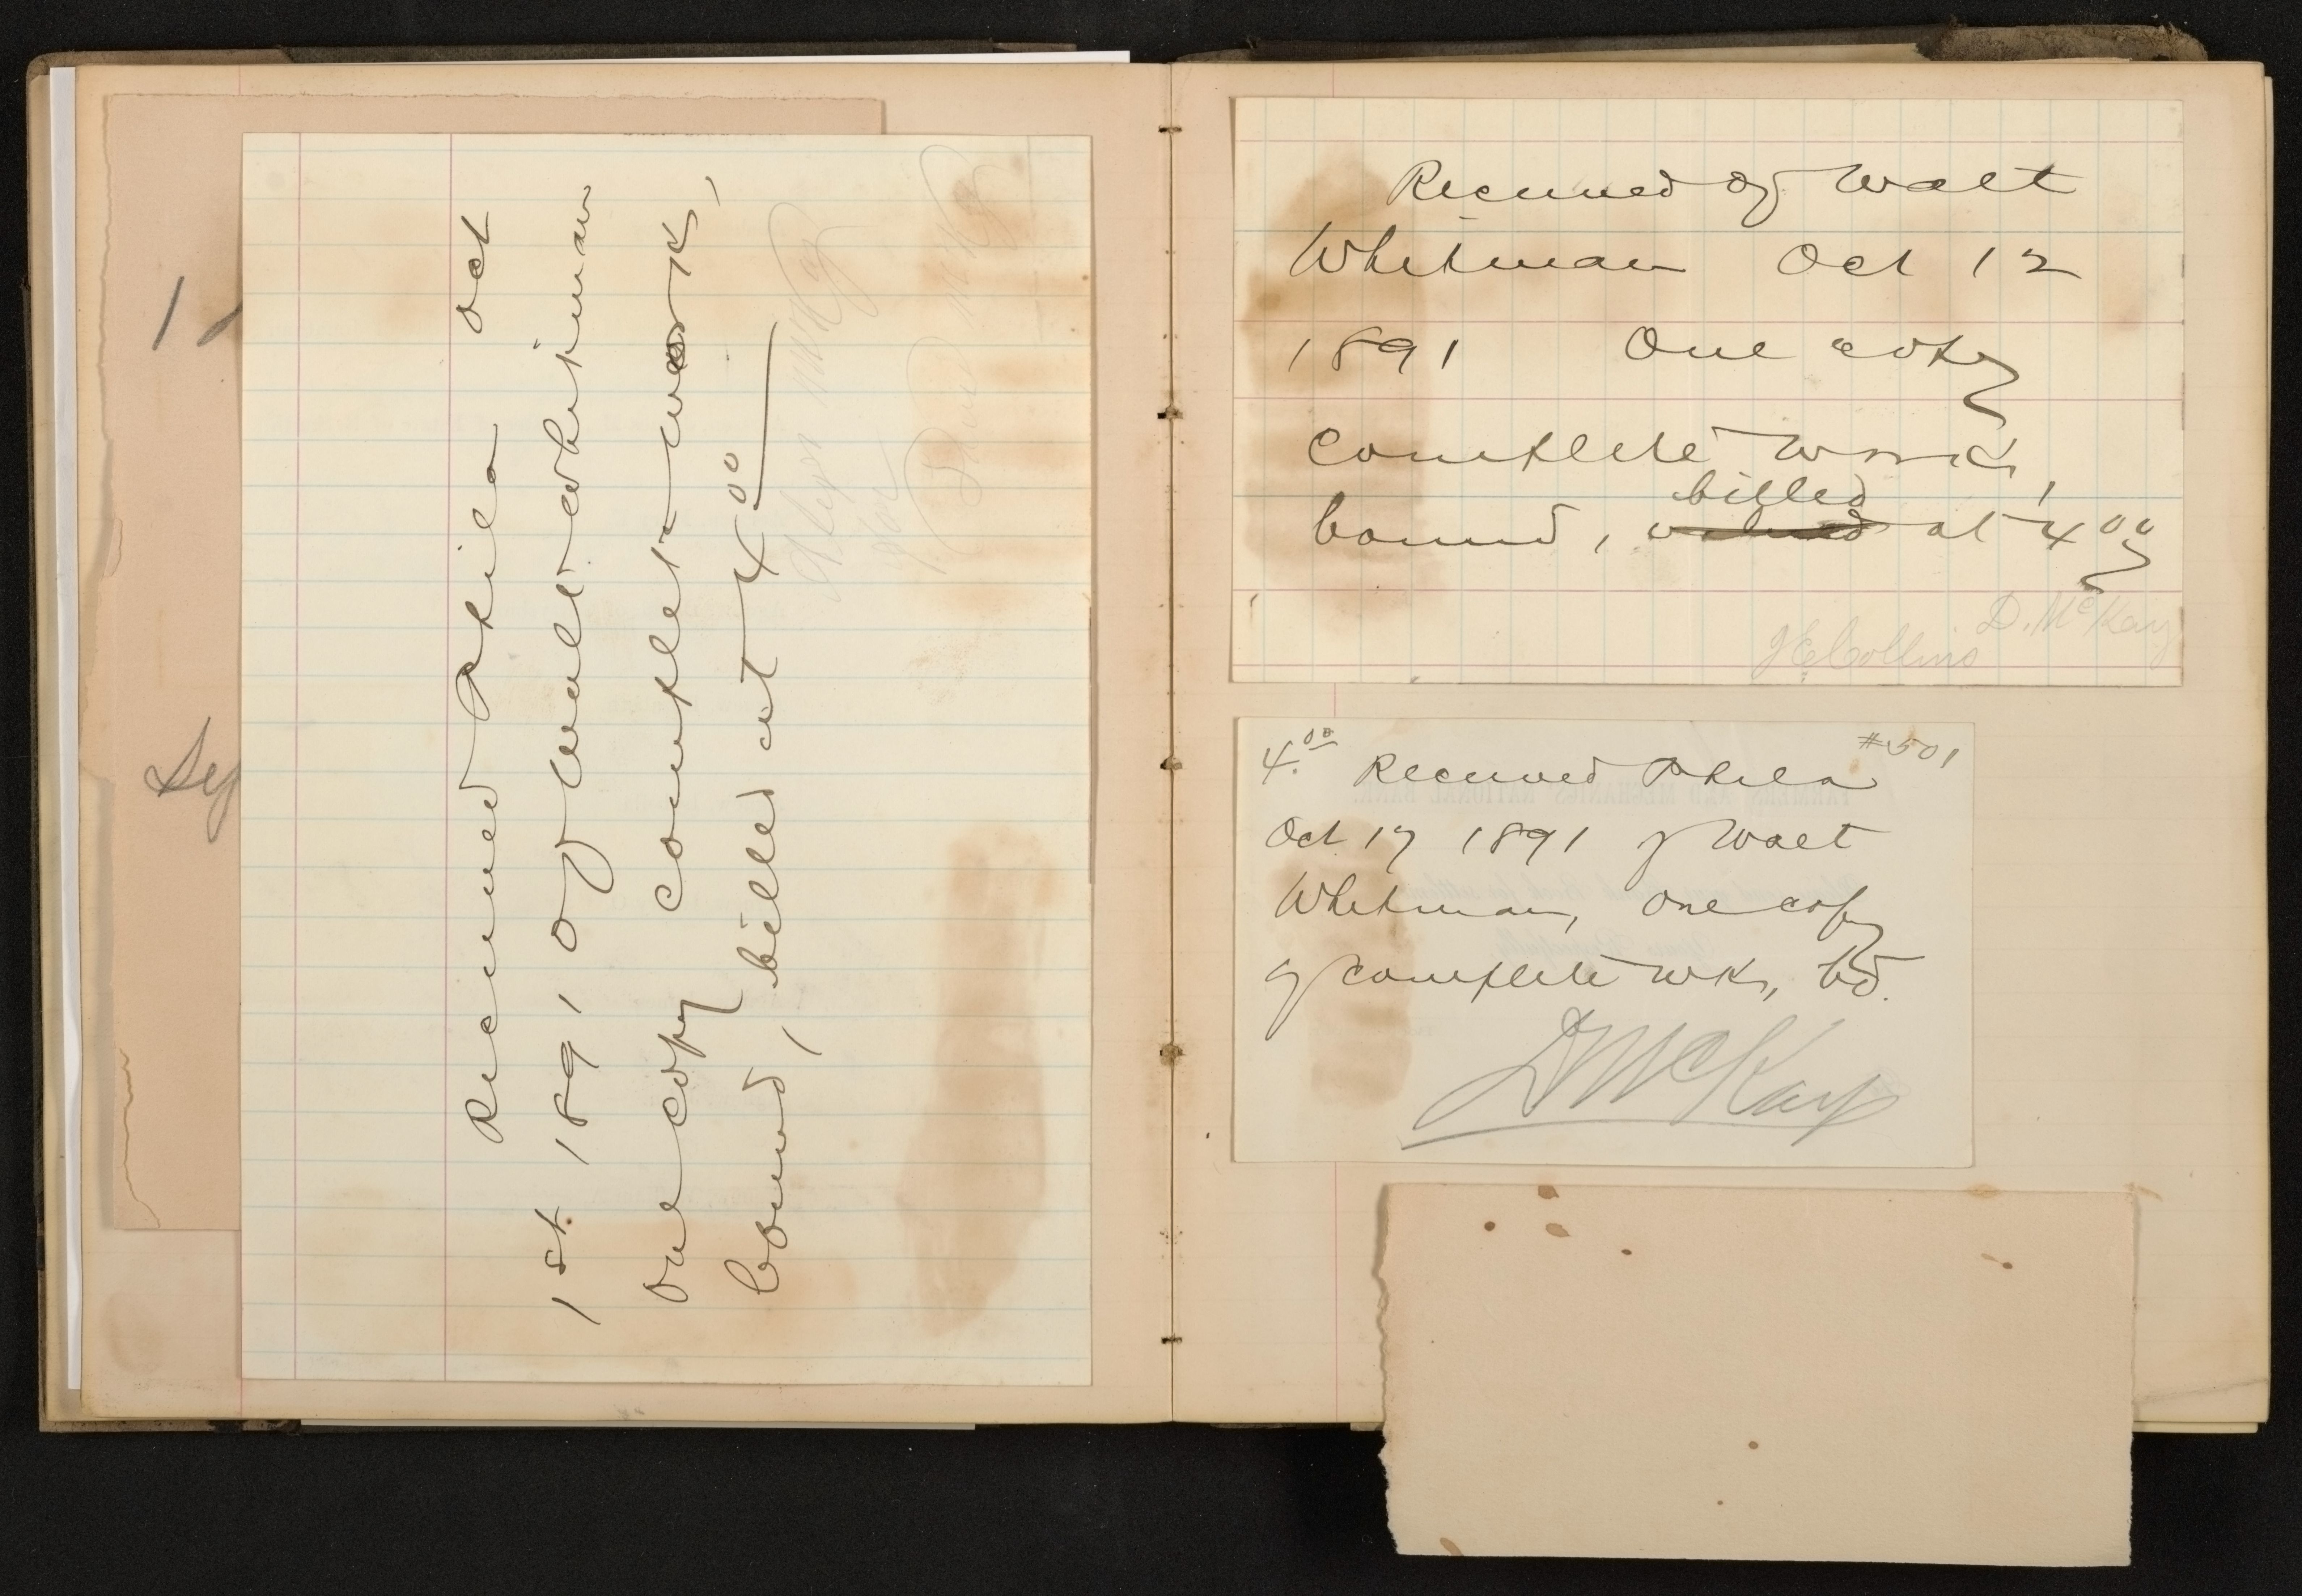 Received Phila Oct
1st 1891 of Walt Whitman
one copy complete works,
bound, billed at 4 00
for
David McKay
Received of Walt
Whitman Oct 12
1891 One copy
complete works,
billed
bound, valued at 4 00
D. McKay
J E Collins
4.00 #501
Received Phila
Oct 17 1891 of Walt
Whitman, one copy
of complete wks, bd.
D McKay
FARMERS AND MECHANICS' NATIONAL BANK.